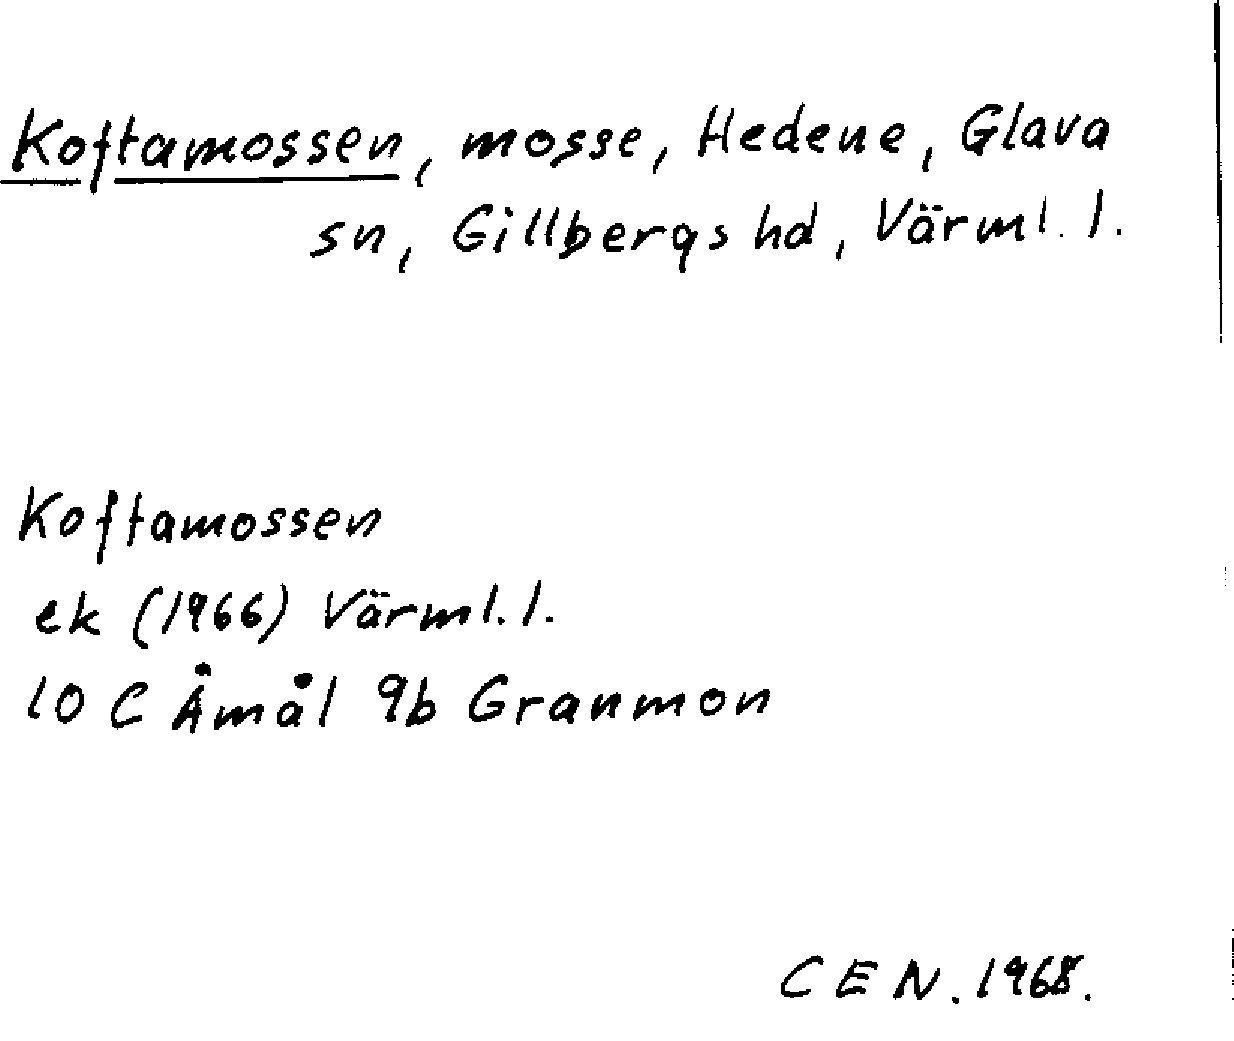 Koftamossen, mosse, Hedene, Glava
sn, Gillbergs hd, Värml. l.
Koftamossen
ek (1966) Värml. l.
10 C Åmål 9b Granmon
C E N. 1968.